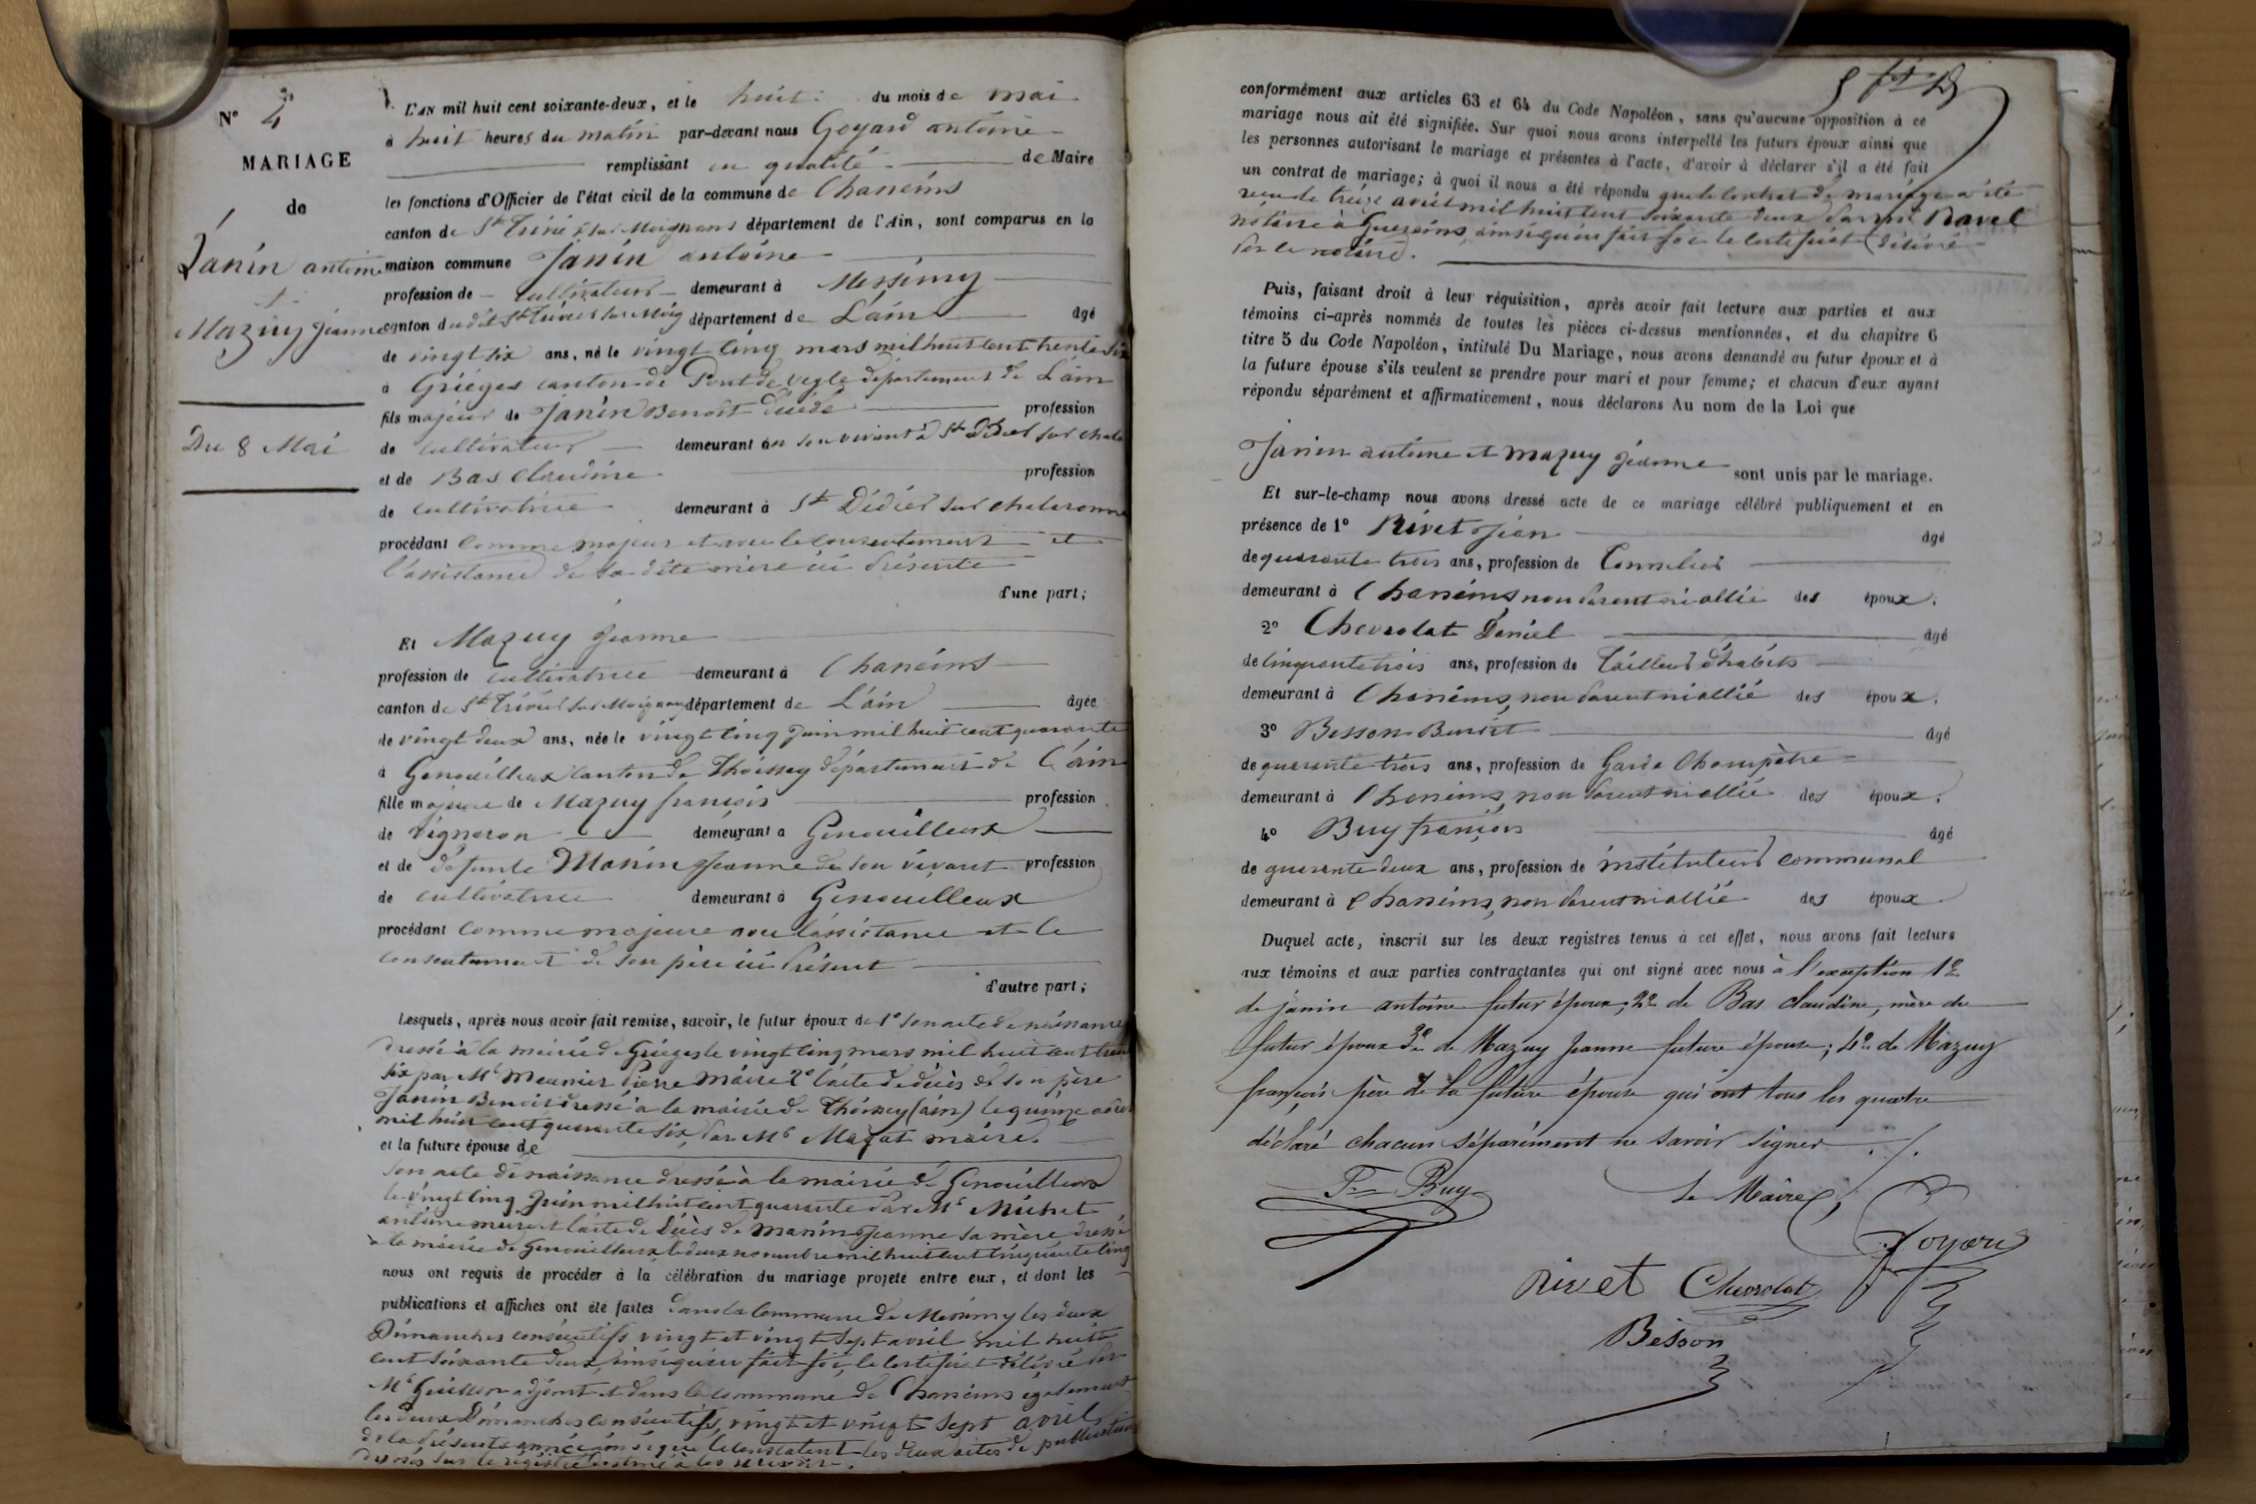 N° 4
MARIAGE
de
Janin antoine
et
Mazuy Jeanne
Du 8 Mai
L'AN mil huit cent soixante-deux, et le huit du mois de mai
à huit heures du matin par-devant nous Goyard antoine
remplissant en qualité de Maire
les fonctions d'Officier de l'état civil de la commune de Chaneins
canton de St Trivier sur Moignans département de l'Ain, sont comparus en la
maison commune Janin antoine
profession de cultivateur demeurant à Messimy
canton dudit St Trivier sur Moig département de L'ain âgé
de vingt six ans, né le vingt cinq mars mil huit cent trente six
à Grièges canton de Pont de veyle département de L'ain
fils majeur de Janin Benoit décédé profession
de cultivateur demeurant en son vivant à St Did sur chala
et de Bas Claudine profession
de cultivatrice demeurant à St Didier sur chalaronne
procédant comme majeur et avec le consentement et
l'assistance de sa dite mère ici présente
d'une part;
Et Mazuy Jeanne
profession de cultivatrice demeurant à Chaneins
canton de St Trivier sur Moignans département de L'ain âgée
de vingt deux ans, née le vingt cinq juin mil huit cent quarante
à Genouilleux canton de Thoissey département de L'ain
fille majeure de Mazuy françois profession
de Vigneron demeurant à Genouilleux
et de défunte Manin Jeanne de son vivant profession
de cultivatrice demeurant à Genouilleux
procédant comme majeure avec l'assistance et le
consentement de son père ici présent
d'autre part;
Lesquels, après nous avoir fait remise, savoir, le futur époux de 1° son acte de naissance
dressé à la mairie de Grièges le vingt cinq mars mil huit cent trente
six par Mr Meunier Pierre Maire 2° l'acte de décès de son père
Janin Benoit dressé à la mairie de Thoissey (ain) le quinze août
mil huit cent quarante six par Mr Magat maire.
et la future épouse de
son acte de naissance dressé à la mairie de Genouilleux
le vingt cinq juin mil huit cent quarante par Mr Michet
antoine maire et l'acte de décès de Manin Jeanne sa mère dressé
à la mairie de Genouilleux le deux novembre mil huit cent cinquante cinq
nous ont requis de procéder à la célébration du mariage projeté entre eux, et dont les
publications et affiches ont été faites dans la Commune de Messimy les deux
Dimanches consécutifs vingt et vingt sept avril mil huit
cent soixante deux, ainsi qu'en fait foi, le certificat délivré par
Mr Guillon adjoint et dans la commune de Chaneins également
les deux Dimanches consécutifs, vingt et vingt sept avril
de la présente année ainsi que le constatent les deux actes de publication
sur le registre destiné à les recevoir.
conformément aux articles 63 et 64 du Code Napoléon, sans qu'aucune opposition à ce
mariage nous ait été signifiée. Sur quoi nous avons interpellé les futurs époux ainsi que
les personnes autorisant le mariage et présentes à l'acte, d'avoir à déclarer s'il a été fait
un contrat de mariage; à quoi il nous a été répondu que le contrat de mariage a été
reçu le treize avril mil huit cent soixante deux par Me Ravel
notaire à Guereins, ainsi qu'en fait foi le certificat délivré
par le notaire.
Puis, faisant droit à leur réquisition, après avoir fait lecture aux parties et aux
témoins ci-après nommés de toutes les pièces ci-dessus mentionnées, et du chapitre 6
titre 5 du Code Napoléon, intitulé Du Mariage, nous avons demandé au futur époux et à
la future épouse s'ils veulent se prendre pour mari et pour femme; et chacun d'eux ayant
répondu séparément et affirmativement, nous déclarons Au nom de la Loi que
Janin antoine et Mazuy Jeanne sont unis par le mariage.
Et sur-le-champ nous avons dressé acte de ce mariage célébré publiquement et en
présence de 1° Rivet Jean âgé
de quarante trois ans, profession de Tonnelier
demeurant à Chaneins, non parent ni allié des époux;
2° Chevrolat Daniel âgé
de cinquante trois ans, profession de Tailleur d'habits
demeurant à Chaneins, non parent ni allié des époux;
3° Besson Benoit âgé
de quarante trois ans, profession de Garde Champêtre
demeurant à Chaneins, non parent ni allié des époux;
4° Buy françois âgé
de quarante deux ans, profession de instituteur communal
demeurant à Chaneins, non parent ni allié des époux
Duquel acte, inscrit sur les deux registres tenus à cet effet, nous avons fait lecture
aux témoins et aux parties contractantes qui ont signé avec nous à l'exception 1°
de janin antoine futur époux; 2° de Bas claudine, mère du
futur époux 3° de Mazuy Jeanne future épouse; 4° de Mazuy
françois père de la future épouse qui ont tous les quatre
déclaré chacun séparément ne savoir signer ./.
Fs Buy
Le Maire,
Goyard
Rivet Chevrolat
Besson